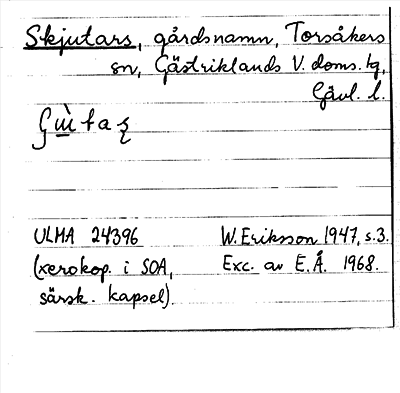 Skjutars, gårdsnamn, Torsåkers
sn, Gästriklands V. doms. tg,
Gävl. l.
ULMA 24396
W. Eriksson 1947, s. 3.
(xerokop. i SOA,
Exc. av E.Å. 1968.
särsk. kapsel).